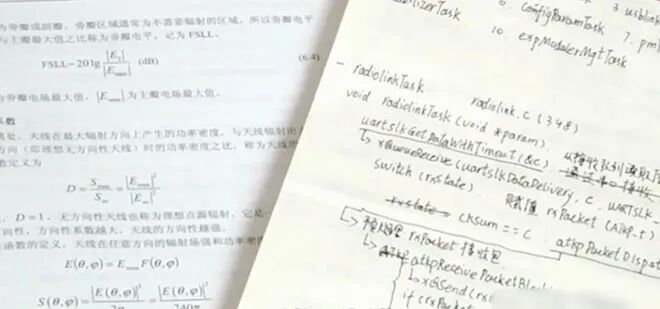 为旁瓣或副瓣，旁瓣区域通常为不需要辐射的区域，所以旁瓣电平
与主瓣最大值之比称为旁瓣电平，记为 FSLL。
FSLL=20lg |E₁|/|Emax| (dB) (6.4)
为旁瓣电场最大值，|Emax|为主瓣电场最大值。
系数
离处，天线在最大辐射方向上产生的功率密度，与天线辐射
方向（即理想无方向性天线）时的功率密度之比，称为天线的
数定义为
D = Smax/Sav = |Emax|²/|Eav|²
D=1。无方向性天线也称为理想点源辐射，它是
方向性，方向性系数越大，天线的方向性越强。
函数的定义，天线在任意方向的辐射场强和功率密
E(θ,φ) = Emax F(θ,φ)
S(θ,φ) = |E(θ,φ)|²/2η = |E(θ,φ)|²/240π
lizerTask
6. configParamTask
3 usblink
7. pm
10. expModulerMgtTask
- radiolinkTask radiolink.c (348)
void radiolinkTask (void *param).
uartslkGetDataWithTimeout (&c)
↳ xQueueReceive (uartslkDataDelivery, c, UARTSLK_
switch (rxState) 赋值 rxPacket (Atkp_t)
rxstate cksum == C. atkpPacketDispat
rxPacket 接收包
atkpReceivePacketBloc
↳ xQSend (rx
if (rxPacket